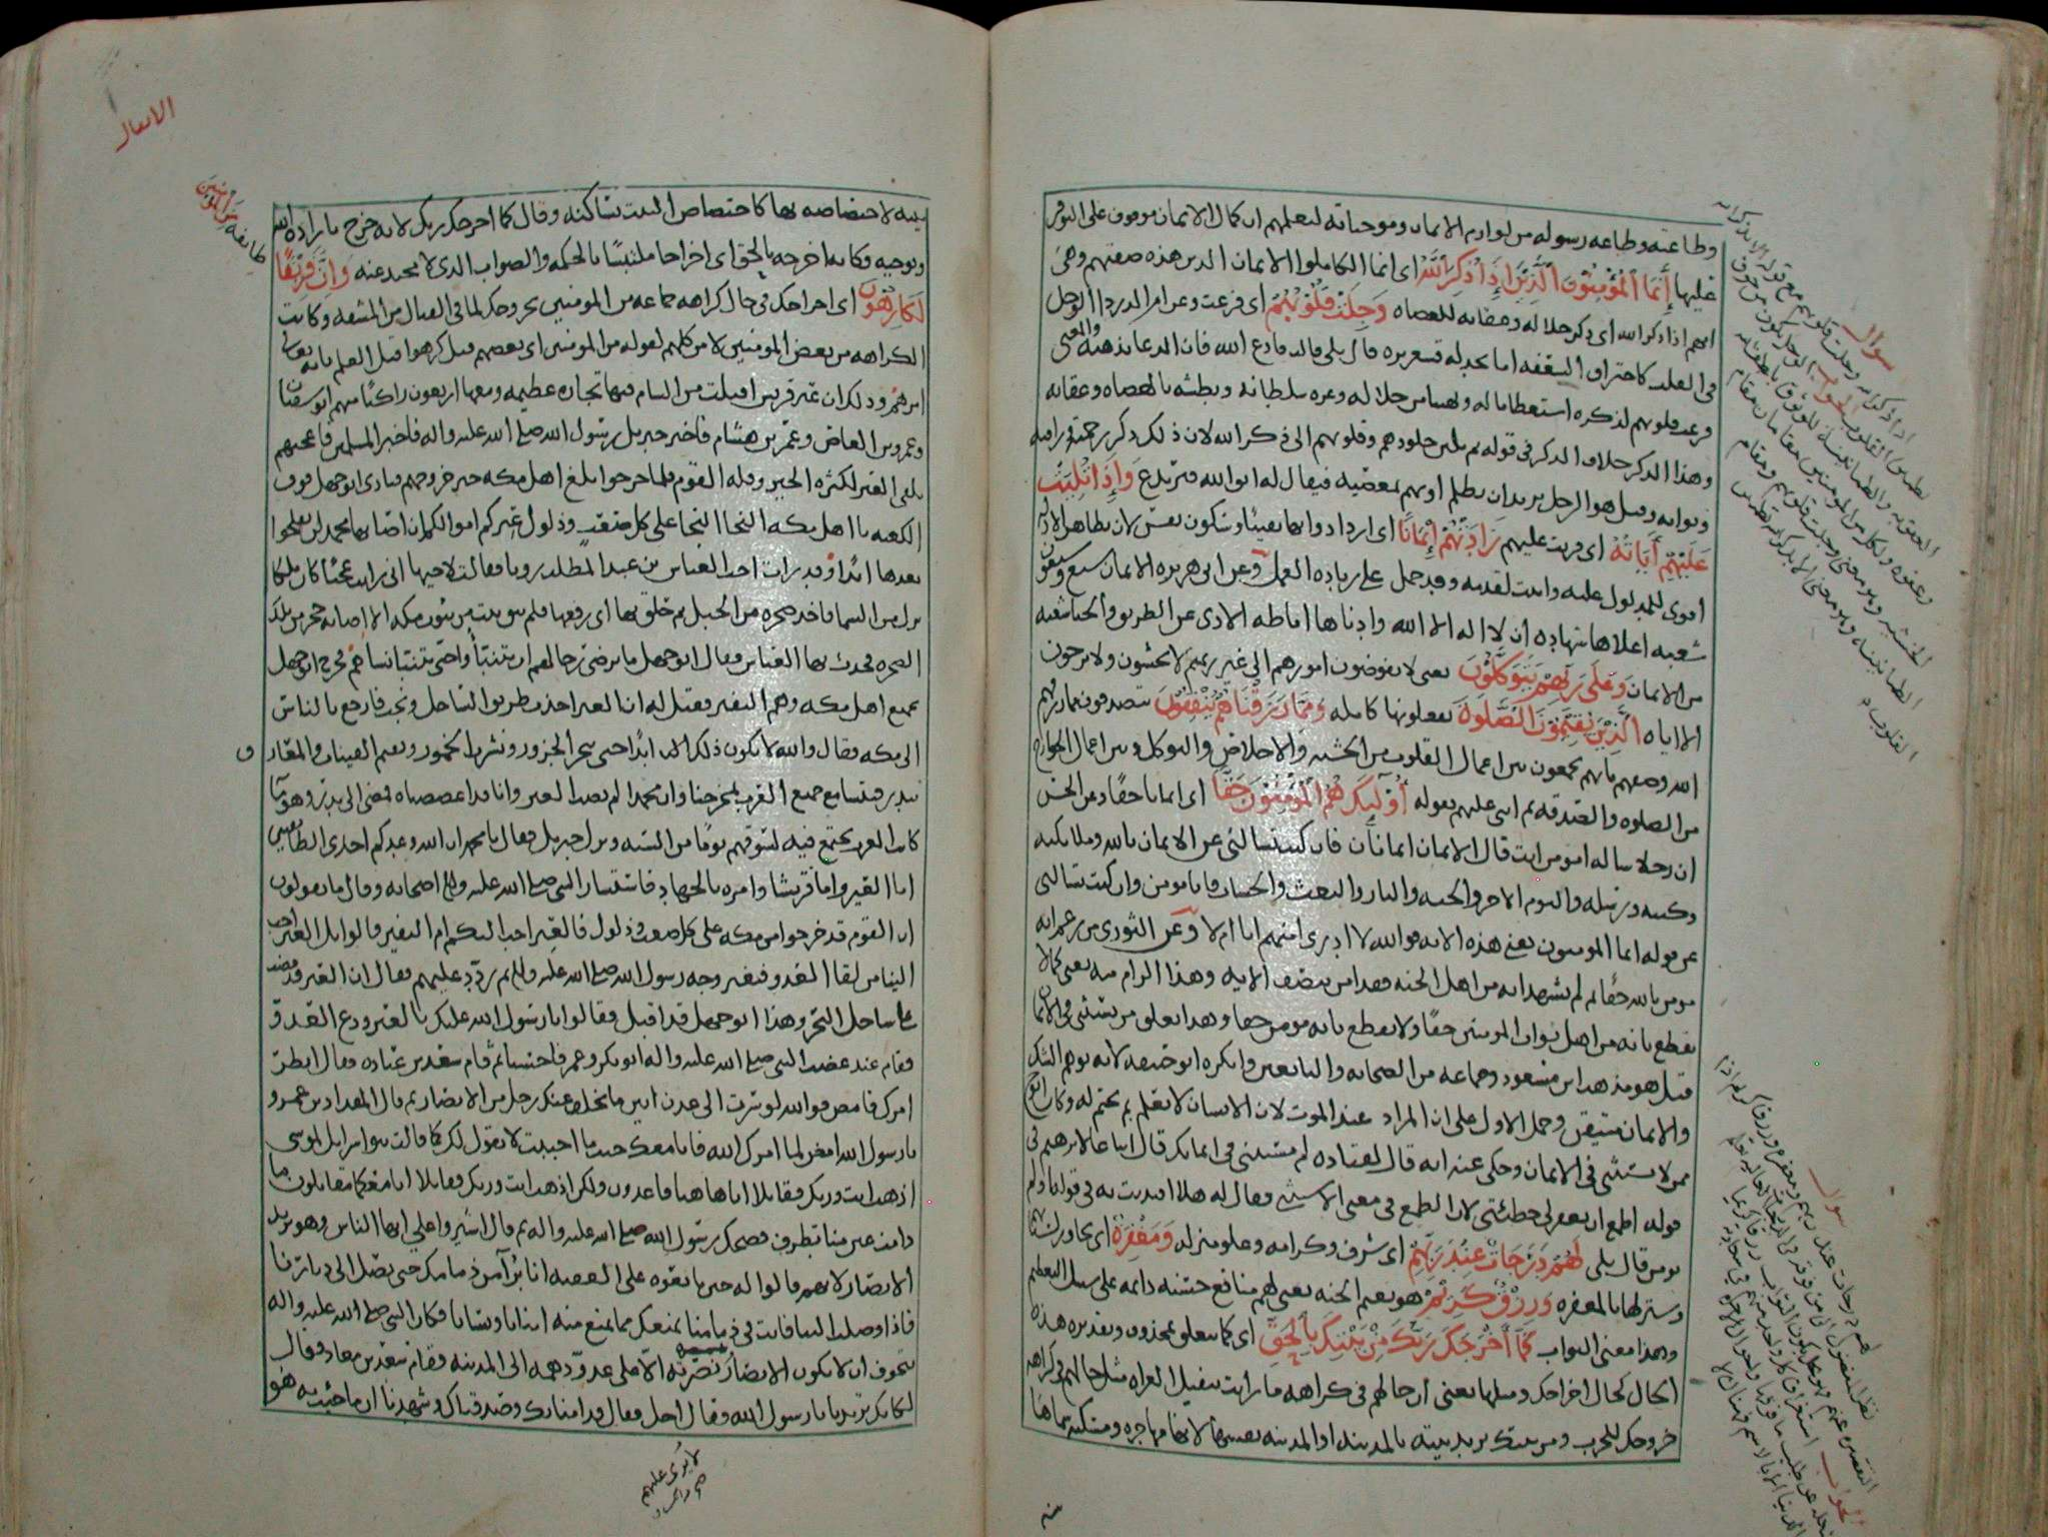 وطاعته وطاعه رسوله من لوازم الايمان وموجباته ليعلمهم ان كمال الايمان موقوف على التوفر
عليها إنما المؤمنون الذين إذا ذكر الله اى انما الكاملوا الايمان الذين هذه صفتهم وهى
انهم اذا ذكر الله اى ذكر جلاله وعقابه للعصاه وجلت قلوبهم اى فزعت وعن ام الدرداء الوجل
فى القلب كاحتراق السعفه اما تجد له قشعريره قال بلى قالت فادع الله فان الدعا يذهبه والمعنى
فزعت قلوبهم لذكره استعظاما له وتهيبا من جلاله وعزه سلطانه وبطشه بالعصاه وعقابه
وهذا الذكر خلاف الذكر فى قوله ثم تلين جلودهم وقلوبهم الى ذكر الله لان ذلك ذكر رحمته ورافته
وثوابه وقيل هو الرجل يريد ان يظلم او يهم بمعصيه فيقال له اتق الله فيرتدع وإذا تليت
عليهم آياته اى قريت عليهم زادتهم إيمانا اى ازدادوا بها يقينا وسكون نفس لان تظاهر الادله
اقوى للمدلول عليه واثبت لقدمه وقد حمل على زياده العمل وعن ابى هريره الايمان سبع وسبعون
شعبه اعلاها شهاده أن لا اله الا الله وادناها اماطه الاذى عن الطريق والحيا شعبه
من الايمان وعلى ربهم يتوكلون يعنى لا يفوضون امورهم الى غير ربهم لا يخشون ولا يرجون
الا اياه الذين يقيمون الصلوة يفعلونها كامله ومما رزقناهم ينفقون يتصدقون مما رزقهم
الله وصفهم بانهم يجمعون بين اعمال القلوب من الخشيه والاخلاص والتوكل وبين اعمال الجوارح
من الصلوه والصدقه ثم اثنى عليهم بقوله أولئك هم المؤمنون حقا اى ايمانا حقا وعن الحسن
ان رجلا ساله امومن انت قال الايمان ايمانان فان كنت تسالنى عن الايمان بالله وملائكته
وكتبه ورسله واليوم الاخر والجنه والنار والبعث والحساب فانا مومن وان كنت تسالنى
عن قوله انما المومنون يعنى هذه الايه فوالله لا ادرى امنهم انا ام لا وعن الثورى من زعم انه
مومن بالله حقا ثم لم يشهد انه من اهل الجنه فقد امن بنصف الايه وهذا الزام منه يعنى كما لا
يقطع بانه من اهل ثواب المومنين حقا فلا يقطع بانه مومن حقا وبهذا تعلق من يستثنى فى الايمان
قيل هو مذهب ابن مسعود وجماعه من الصحابه والتابعين وانكره ابو حنيفه لانه يوهم الشك
والايمان متيقن وحمل الاول على ان المراد عند الموت لان الانسان لا يعلم بم يختم له وكان ابو
ممن لا يستثنى فى الايمان وحكى عنه انه قال لقتاده لم تستثنى فى ايمانك قال اتباعا لابرهيم فى
قوله اطمع ان يغفر لى خطيئتى لان الطمع فى معنى الاستثنى فقال له هلا اقتديت به فى قوله اولم
تومن قال بلى لهم درجات عند ربهم اى شرف وكرامه وعلو منزله ومغفرة اى تجاوز لسيئاتهم
وستر لها بالمغفره ورزق كريم هو نعيم الجنه يعنى لهم منافع حسنه دائمه على سبيل التعظيم
وهذا معنى الثواب كما أخرجك ربك من بيتك بالحق اى كما يتعلق بمحذوف وتقديره هذه
الحال كحال اخراجك ومثلها يعنى ان حالهم فى كراهه ما رايت من تنفيل الغزاه مثل حالهم فى كراهه
خروجك للحرب ومن بيتك يريد بيته بالمدينه او المدينه نفسها لانها مهاجره ومسكنه فهى
سوال
الجواب
سوال
الجواب
الانفال
طايفة من المؤمنين
بيته لاختصاصه بها كاختصاص البيت بساكنه وقال كما اخرجك ربك لانه خرج بارادة الله
وتوجيه فكانه اخرجه بالحق اى اخراجا ملتبسا بالحكمه والصواب الذى لا محيد عنه وإن فريقا
لكارهون اى اخراجك فى حال كراهه جماعه من المومنين لخروجك لما فى القتال من المشقه وكانت
الكراهه من بعض المومنين لا من كلهم لقوله من المومنين اى بعضهم قيل كرهوا قبل العلم بانه تعالى
امرهم وذلك ان عير قريش اقبلت من الشام فيها تجاره عظيمه ومعها اربعون راكبا منهم ابو سفيان
وعمرو بن العاص وعمرو بن هشام فاخبر جبريل رسول الله صلى الله عليه واله فاخبر المسلمين فاعجبهم
تلقى العير لكثره الخير وقله القوم فلما خرجوا بلغ اهل مكه خبر خروجهم فنادى ابو جهل فوق
الكعبه يا اهل مكه النجا النجا على كل صعب وذلول عيركم اموالكم ان اصابها محمد لن تفلحوا
بعدها ابدا وقد رات اخت العباس بن عبد المطلب رويا فقالت لاخيها انى رايت عجبا كان ملكا
نزل من السما فاخذ صخره من الجبل ثم حلق بها اى رفعها فلم يبق بيت من بيوت مكه الا اصابه حجر من تلك
الصخره فحدث بها العباس فقال ابو جهل ما يرضى رجالهم ان يتنبأوا حتى يتنبا نساهم فخرج ابو جهل
بجميع اهل مكه وهم النفير فقيل له ان العير اخذت طريق الساحل ونجت فارجع بالناس
الى مكه فقال لا والله لا يكون ذلك ابدا حتى ننحر الجزور ونشرب الخمور ونقيم القينات والمعازف
ببدر فيتسامع جميع العرب بمخرجنا وان محمدا لم يصب العير وانا قد اعضضناه فمضى الى بدر وهو ما
كانت العرب تجتمع فيه لسوقهم يوما من السنه ونزل جبريل فقال يا محمد ان الله وعدكم احدى الطايفتين
اما العير واما قريشا وامره بالجهاد فاستشار النبى صلى الله عليه واله اصحابه وقال ما تقولون
ان القوم قد خرجوا من مكه على كل صعب وذلول فالعير احب اليكم ام النفير قالوا بل العير احب
الينا من لقا العدو فتغير وجه رسول الله صلى الله عليه واله ثم ردد عليهم فقال ان العير قد مضت
على ساحل البحر وهذا ابو جهل قد اقبل فقالوا يا رسول الله عليك بالعير ودع العدو
فقام عند غضب النبى صلى الله عليه واله ابو بكر وعمر فاحسنا ثم قام سعد بن عباده فقال انظر
امرك فامض فوالله لو سرت الى عدن ابين ما تخلف عنك رجل من الانصار ثم قال المقداد بن عمرو
يا رسول الله امض لما امرك الله فانا معك حيث ما احببت لا نقول لك كما قالت بنو اسرايل لموسى
اذهب انت وربك فقاتلا انا هاهنا قاعدون ولكن اذهب انت وربك فقاتلا انا معكما مقاتلون ما
دامت عين منا تطرف فضحك رسول الله صلى الله عليه واله ثم قال اشيروا على ايها الناس وهو يريد
الانصار لانهم قالوا له حين بايعوه على العقبه انا برآء من ذمامك حتى تصل الى ديارنا
فاذا وصلت الينا فانت فى ذمامنا نمنعك مما نمنع منه ابنانا ونسانا فكان النبى صلى الله عليه واله
يتخوف ان لا يكون الانصار نصرته الا على عدو دهمه الى المدينه فقام سعد بن معاذ فقال
لكانك تريدنا يا رسول الله وقال اجل فقال قد امنا بك وصدقناك وشهدنا ان ما جئت به هو